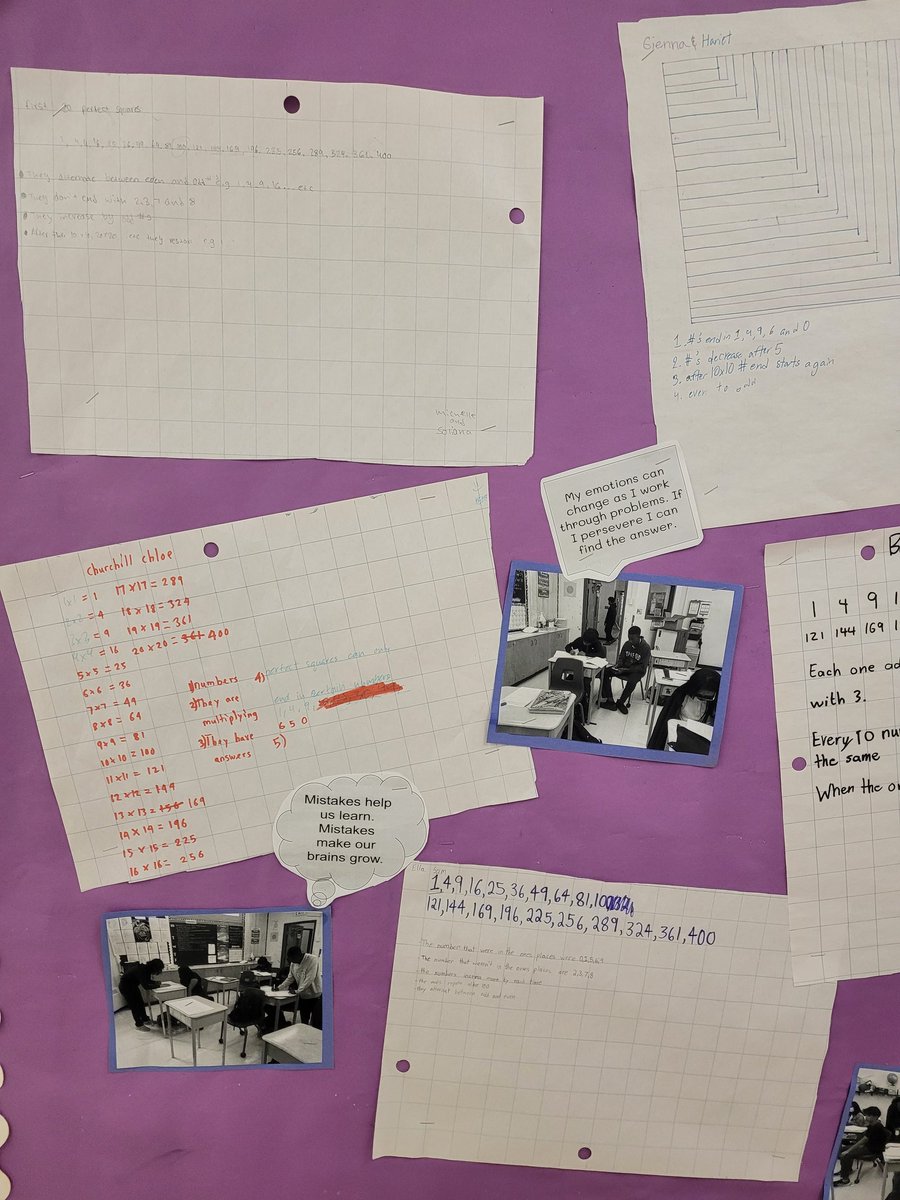 First 20 perfect squares
169, 196, 225, 256, 289, 324, 361, 400
They alternate between even and odd e.g 1, 4, 9, 16... etc
They don't end with 2,3,7 and 8
They increase by odd #s
michelle
and
Soliana
Gjenna & Hariet
1. #'s end in 1, 4, 9, 6 and 0
2. #'s decrease after 5
3. after 10x10 # end starts again
4. even to odd
My emotions can
change as I work
through problems. If
I persevere I can
find the answer.
Churchill chloe
= 1 17×17 = 289
= 4 18×18 = 324
= 9 19×19 = 361
4×4 = 16 20×20 = 361 400
5×5 = 25
6×6 = 36
7×7 = 49
8×8 = 64
9×9 = 81
10×10 = 100
11×11 = 121
12×12 = 144
13×13 = 169
14×14 = 196
15×15 = 225
16×16 = 256
1) numbers
2) They are
multiplying
3) They have
answers
4) perfect squares can only
end in certain numbers
1, 4, 9,
6 5 0
5)
1 4 9
121 144 169
Each one
with 3.
Every 10
the same
When the
Mistakes help
us learn.
Mistakes
make our
brains grow.
Ella Sam
1,4,9,16,25,36,49,64,81,100
121,144,169,196,225,256,289,324,361,400
The numbers that were in the ones places were
The number that weren't in the ones places are 2,3,7,8
the numbers more by each time
they between and even